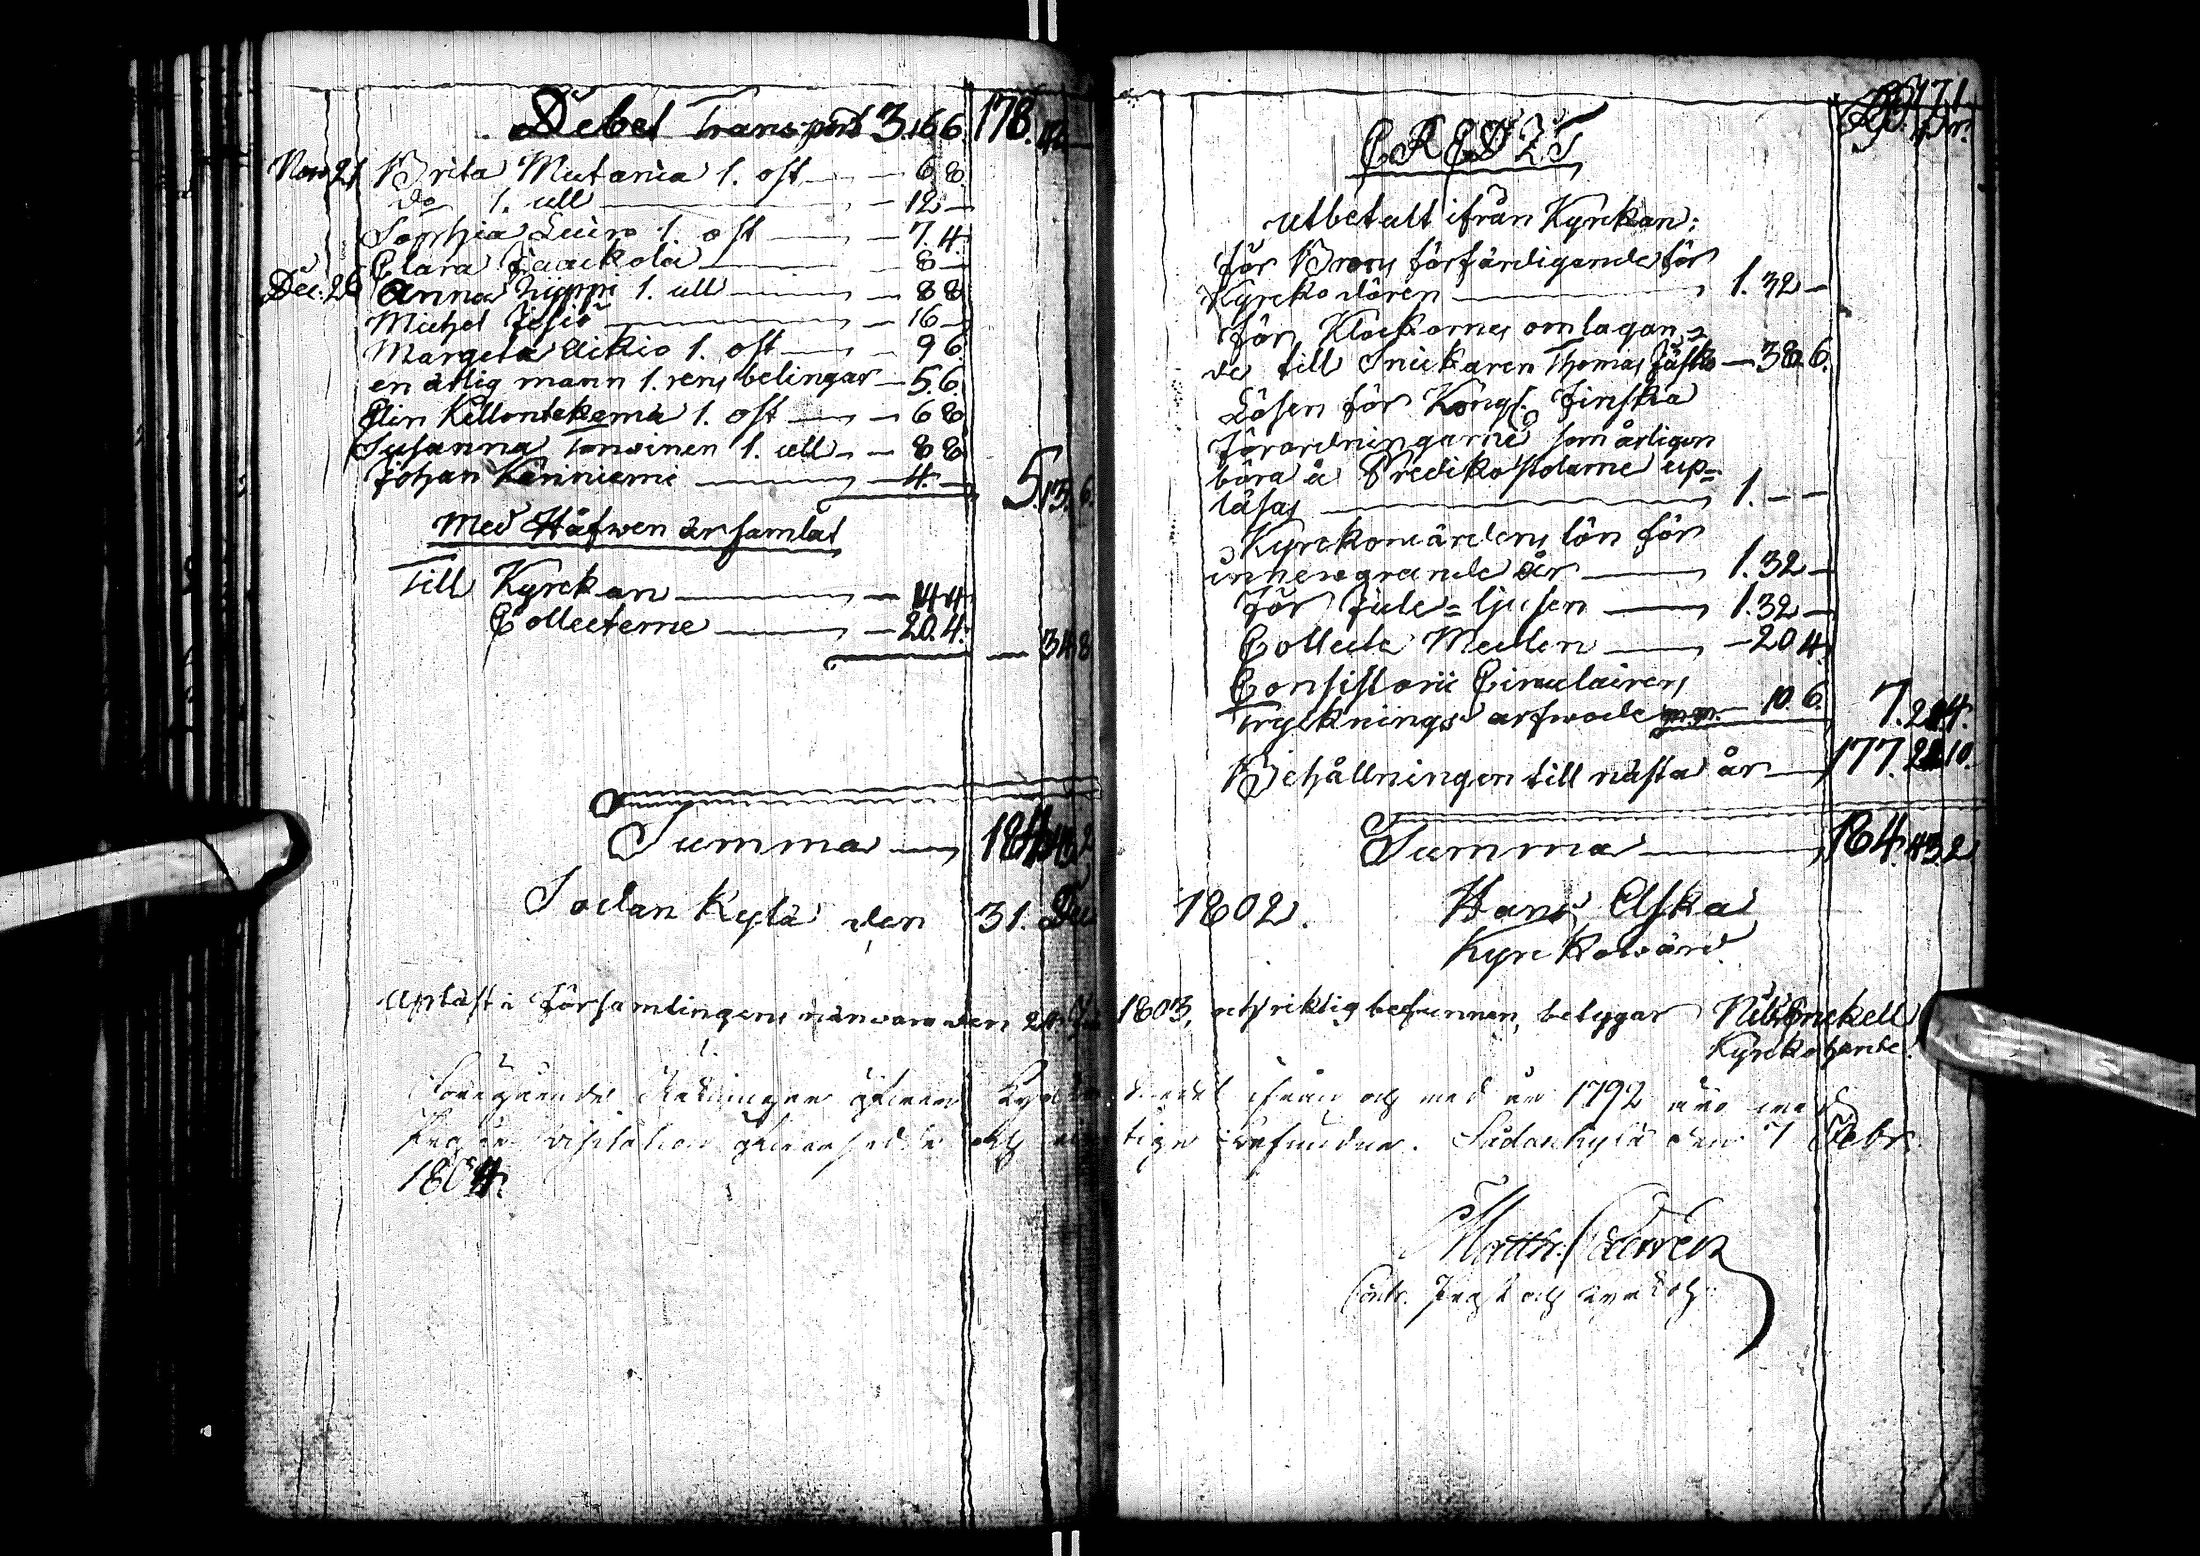 Debet Transport 3.16.6. 178.
Nov 21 Brita Mutania 1. ost — 6 8.
do 1. ull — 12 —
Sophia Luiro 1. ost — 7. 4.
Clara Jaakola — 8 —
Dec: 26 Anna Nippi 1. ull — 8 8
Michel Jesiö — 16 —
Margeta Aikio 1. ost — 9 6.
en ärlig mann 1. rens belingar — 5. 6.
Elin Killontekemä 1. ost — 6 8
Susanna Tonwinen 1. ull — 8 8
Johan Kinniemi — 4 — 5. 13. 6.
Med Häfwen är samlat
Till Kyrckan — 14 4.
Collecterne — 20. 4. — 34 8
Summa — 184. 43. 2
Sodankylä den 31. Dec
171
CREDIT
utbetalt ifrån Kyrckan:
för Brons förfärdigande för
Kyrcko dören — 1. 32 —
för Klockornes omlagan=
de till Snickaren Thomas — 38. 6.
Lösen för Kongl. Finska
Förordningarne som årligen
böra å Predikostolarne up=
läsas — 1. — —
Kyrckowärdens lön för
innewarande år — 1. 32 —
för Jule=ljusen — 1. 32 —
Collecte Medlen — 20 4.
Consistorii Circulairers
Trycknings arfwode — 10. 6. 7. 21. 4.
Behållningen till nästa år — 177. 21. 10.
Summa — 184. 43. 2
1802. Hans Aska
Kyrckowärd.
Upläst i Församlingens närwaro den 1803, och riktig befunnen, betygar Nils Enckell
Kyrckoherde.
Föregående Räkningar öfwer ifrån och med år 1792 äro wid
visitation öfwersedde och befundne. Sodankylä den 7 Febr.
1804.
Contr. Prost och Kyrckoh.